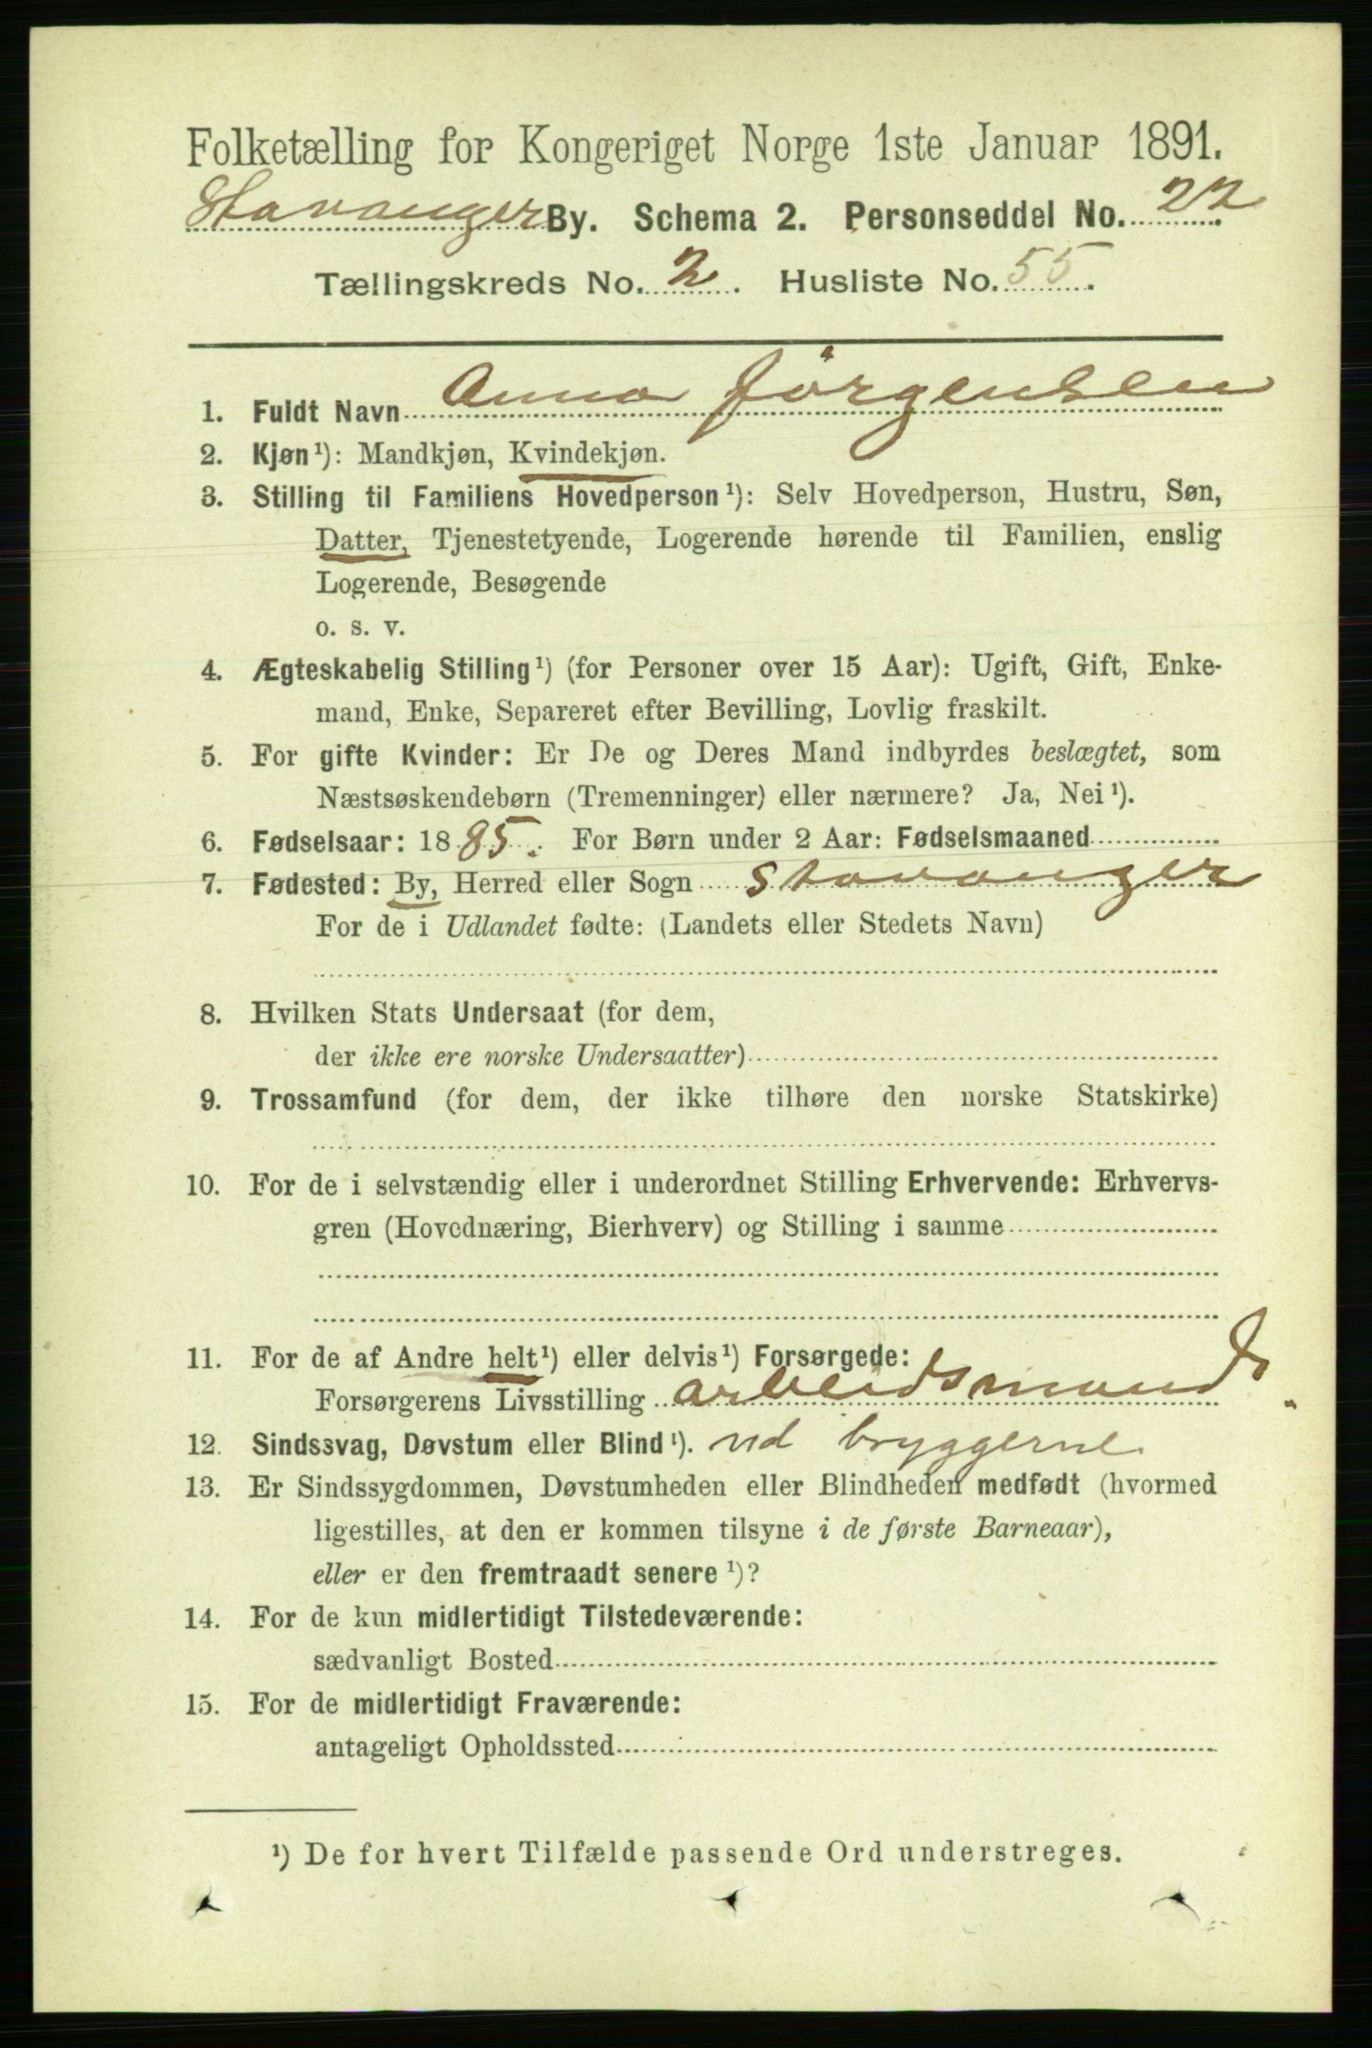 Folketælling for Kongeriget Norge 1ste Januar 1891.
Stavanger By. Schema 2. Personseddel No. 22.
Tællingskreds No. 2. Husliste No. 55.
1. Fuldt Navn Anna Jörgensen
2. Kjøn¹): Mandkjøn, Kvindekjøn.
3. Stilling til Familiens Hovedperson¹): Selv Hovedperson, Hustru, Søn,
Datter, Tjenestetyende, Logerende hørende til Familien, enslig
Logerende, Besøgende
o. s. v.
4. Ægteskabelig Stilling¹) (for Personer over 15 Aar): Ugift, Gift, Enke-
mand, Enke, Separeret efter Bevilling, Lovlig fraskilt.
5. For gifte Kvinder: Er De og Deres Mand indbyrdes beslægtet, som
Næstsøskendebørn (Tremenninger) eller nærmere? Ja, Nei¹).
6. Fødselsaar: 1885. For Børn under 2 Aar: Fødselsmaaned
7. Fødested: By, Herred eller Sogn Stavanger
For de i Udlandet fødte: (Landets eller Stedets Navn)
8. Hvilken Stats Undersaat (for dem,
der ikke ere norske Undersaatter)
9. Trossamfund (for dem, der ikke tilhøre den norske Statskirke)
10. For de i selvstændig eller i underordnet Stilling Erhvervende: Erhvervs-
gren (Hovednæring, Bierhverv) og Stilling i samme
11. For de af Andre helt¹) eller delvis¹) Forsørgede:
Forsørgerens Livsstilling arbeidsmand
12. Sindssvag, Døvstum eller Blind¹). ved bryggerne
13. Er Sindssygdommen, Døvstumheden eller Blindheden medfødt (hvormed
ligestilles, at den er kommen tilsyne i de første Barneaar),
eller er den fremtraadt senere¹)?
14. For de kun midlertidigt Tilstedeværende:
sædvanligt Bosted
15. For de midlertidigt Fraværende:
antageligt Opholdssted
¹) De for hvert Tilfælde passende Ord understreges.